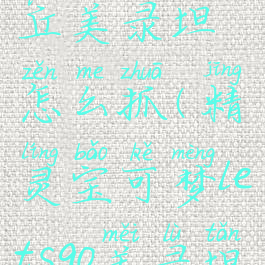 丘美录坦
zěn me zhuā jīng
怎么抓(精
líng bǎo kě mèng
灵宝可梦le
měi lù tǎn
tsgo美录坦